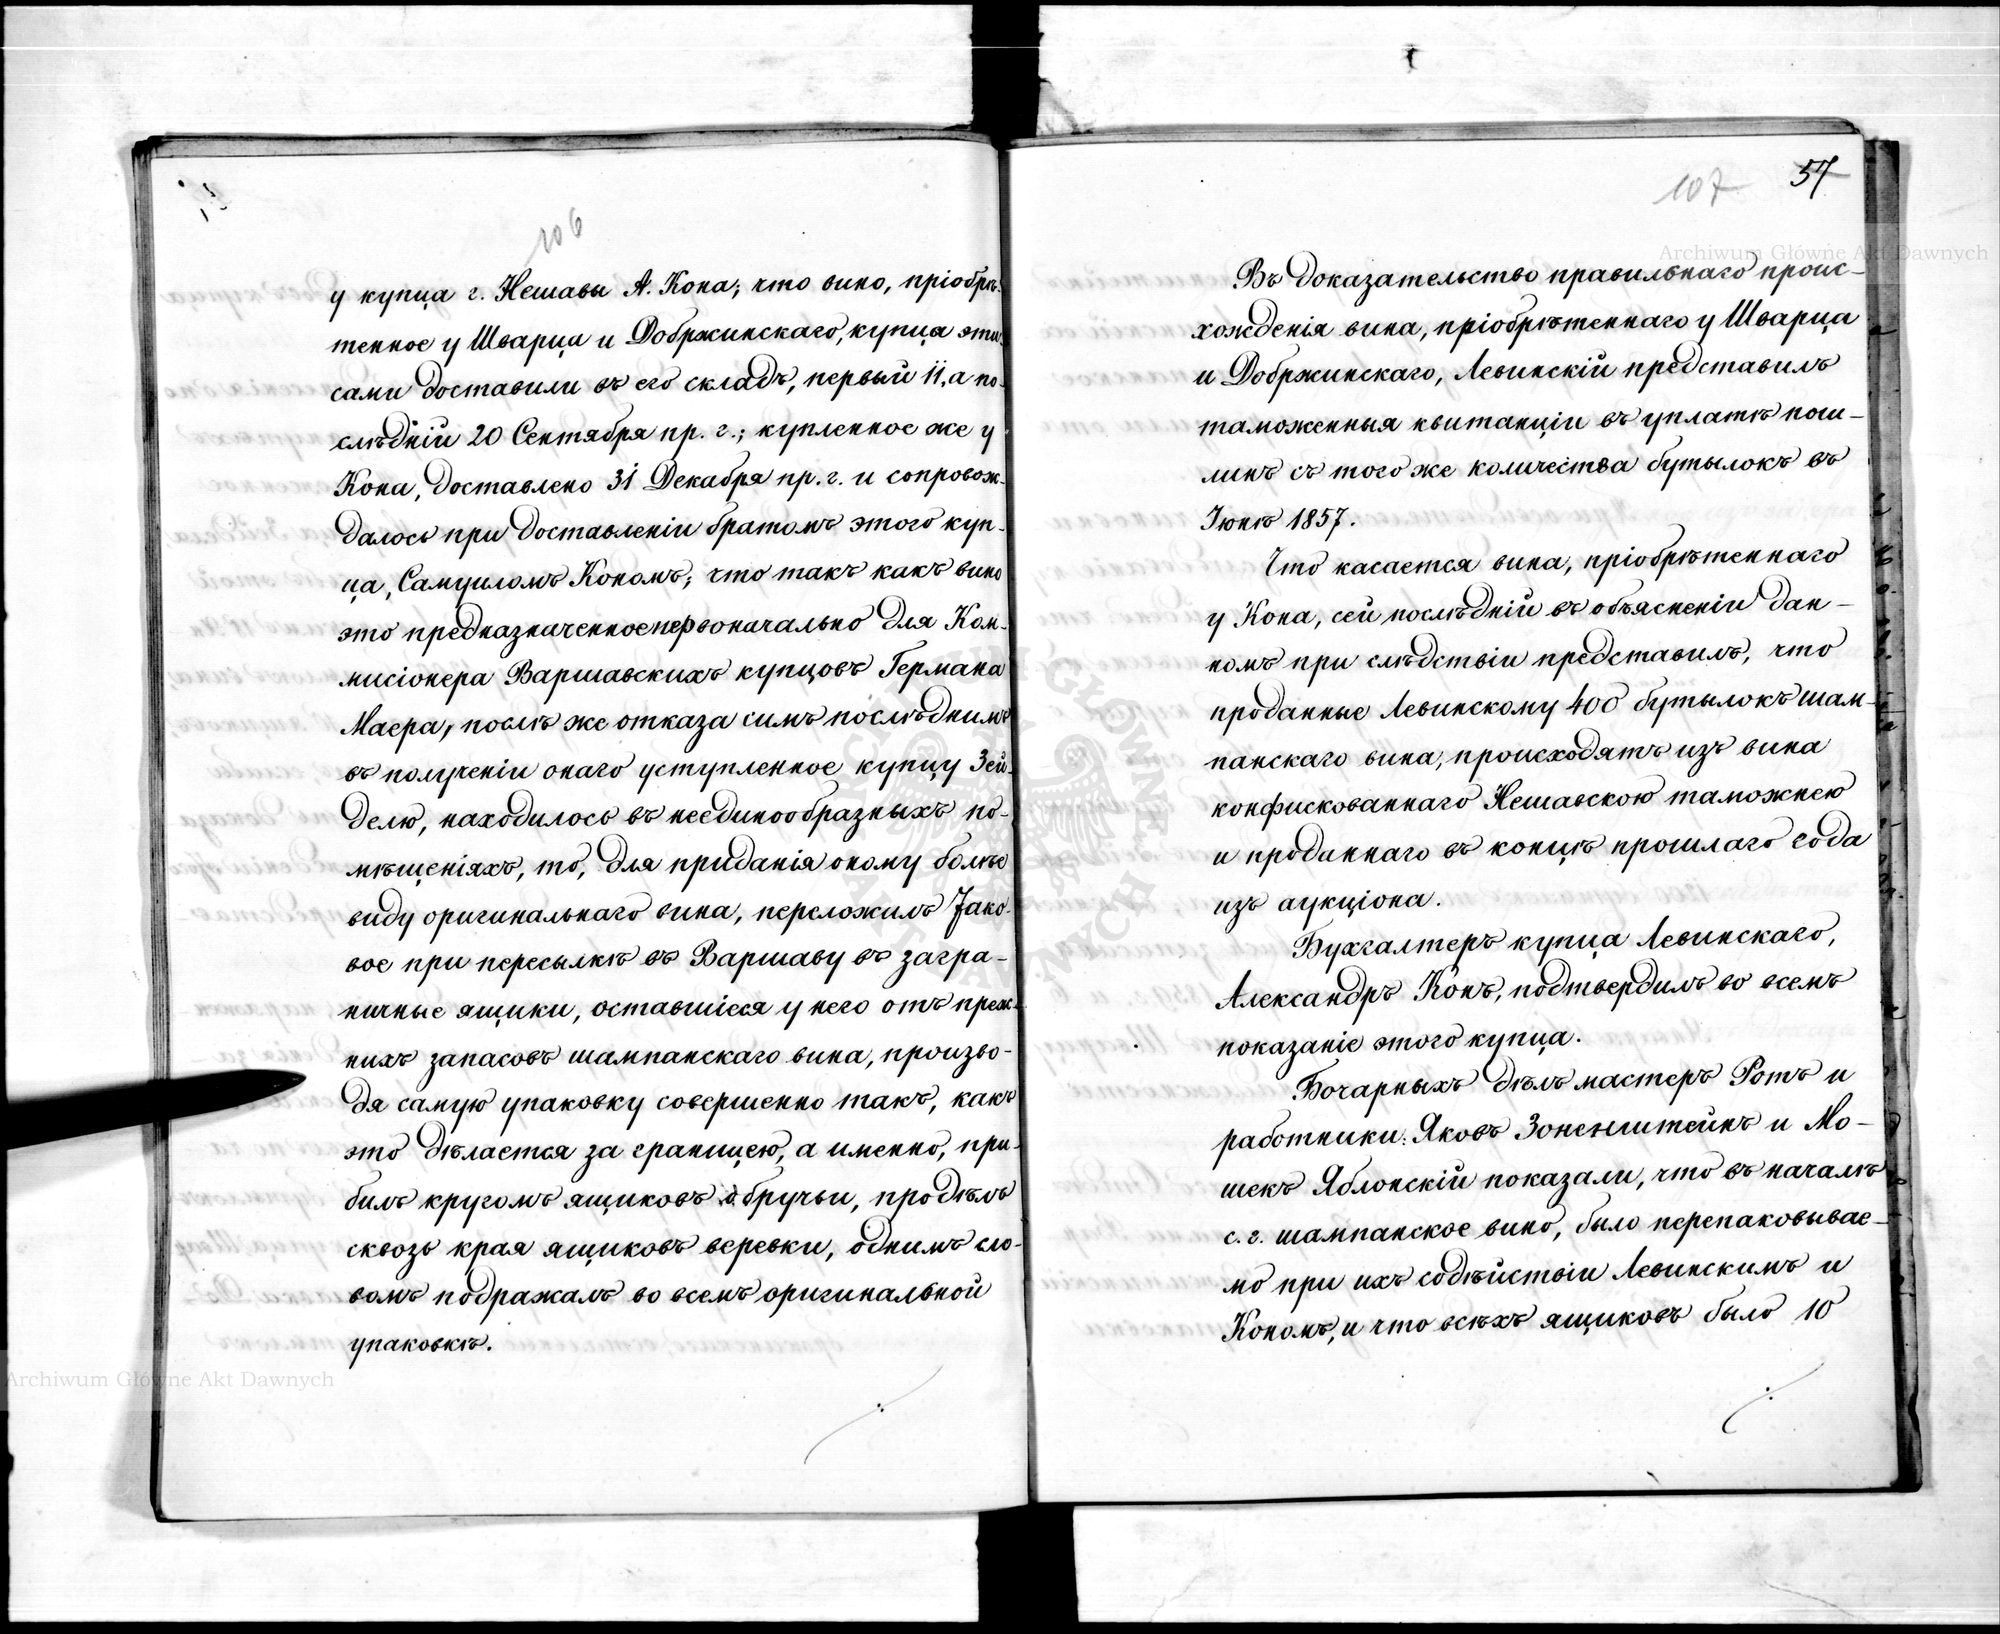 106
у купца г. Нешавы А. Кона; что вино, пріобрѣ-
тенное у Шварца и Добржинскаго, купца эти
сами доставили въ его складъ, первый 11, а по-
слѣдній 20 Сентября пр. г.; купленное же у
Кона, доставлено 31 Декабря пр. г. и сопровож-
далось при доставленіи братомъ этого куп-
ца, Самуиломъ Кономъ; что такъ какъ вино
это предназначенное первоначально для Ком-
мисіонера Варшавскихъ купцовъ Германа
Маера, послѣ же отказа симъ послѣднимъ
въ полученіи онаго уступленное купцу Зей-
делю, находилось въ неединообразныхъ по-
мѣщеніяхъ, то, для приданія оному болѣе
виду оригинальнаго вина, переложилъ Тако-
вое при пересылкѣ въ Варшаву въ загра-
ничные ящики, оставшіеся у него отъ преж-
нихъ запасовъ шампанскаго вина, произво-
дя самую упаковку совершенно такъ, какъ
это дѣлается за границею, а именно, при-
билъ кругомъ ящиковъ обручьи, продѣлъ
сквозь края ящиковъ веревки, однимъ сло-
вомъ подражалъ во всемъ оригинальной
упаковкѣ.
107 57
Въ доказательство правильнаго проис-
хожденія вина, пріобрѣтеннаго у Шварца
и Добржинскаго, Левинскій представилъ
таможенныя квитанціи въ уплатѣ пош-
линъ съ того же количества бутылокъ въ
Іюнѣ 1857.
Что касается вина, пріобрѣтеннаго
у Кона, сей послѣдній въ объясненіи дан-
номъ при слѣдствіи представилъ, что
проданные Левинскому 400 бутылокъ шам-
панскаго вина, происходятъ изъ вина
конфискованнаго Нешавскою таможнею
и проданнаго въ концѣ прошлаго года
изъ аукціона.
Бухгалтеръ купца Левинскаго,
Александръ Конъ, подтвердилъ во всемъ
показаніе этого купца.
Бочарныхъ дѣлъ мастеръ Ротъ и
работники: Яковъ Зоненштейнъ и Мо-
шекъ Яблонскій показали, что въ началѣ
с. г. шампанское вино, было перепаковывае-
мо при ихъ содѣйствіи Левинскимъ и
Кономъ, и что всѣхъ ящиковъ было 10
Archiwum Główne Akt Dawnych
Archiwum Główne Akt Dawnych